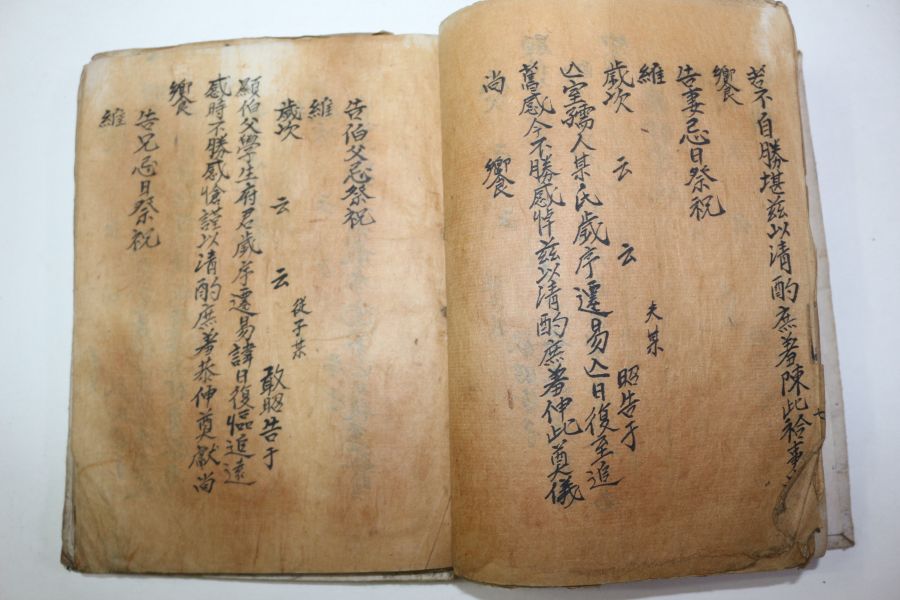 若不自勝堪玆以清酌庶羞陳此祫事
饗
告妻忌日祭祝
維
歲次 云 云 夫某 昭告于
亡室孺人某氏歲序遷易亡日復至追
舊感今不勝感悼玆以清酌庶羞伸此奠儀
尚 饗
告伯父忌祭祝
維
歲次 云 云 從子某 敢昭告于
顯伯父學生府君歲序遷易諱日復臨追遠
感時不勝感愴謹以清酌庶羞恭伸奠獻尚
饗
告兄忌日祭祝
維